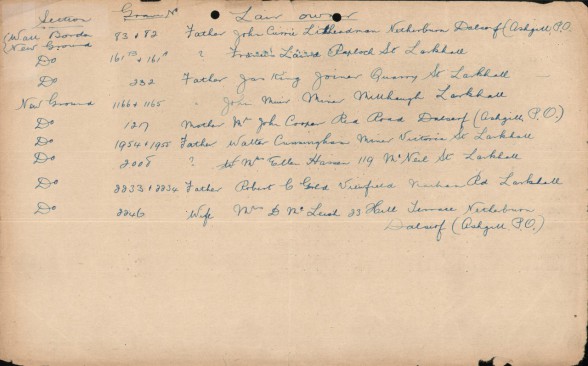 Section Grave No Lair owner
{Wall Border 83 & 82 Father John Currie Nethanburn Dalserf (Ashgill P.O.
{New Ground
Do 161 & 161A ? Raploch St Larkhall
Do 232 Father Jas King Joiner Quarry St Larkhall
New Ground 1166 & 1165 " John Muir Miner Millheugh Larkhall
Do 127 Mother Mrs John Cooper Red Road Dalserf (Ashgill P.O.)
Do 1954 & 1955 Father Walter Cunningham Miner Victoria St Larkhall
Do 2008 ? Mrs Ellen 119 McNeil St Larkhall
Do 2233 & 2234 Father Robert C Gold Rd Larkhall
Do 2246 Wife Mrs D McLeish 23 Hill Terrace Netherburn
Dalserf (Ashgill P.O.)